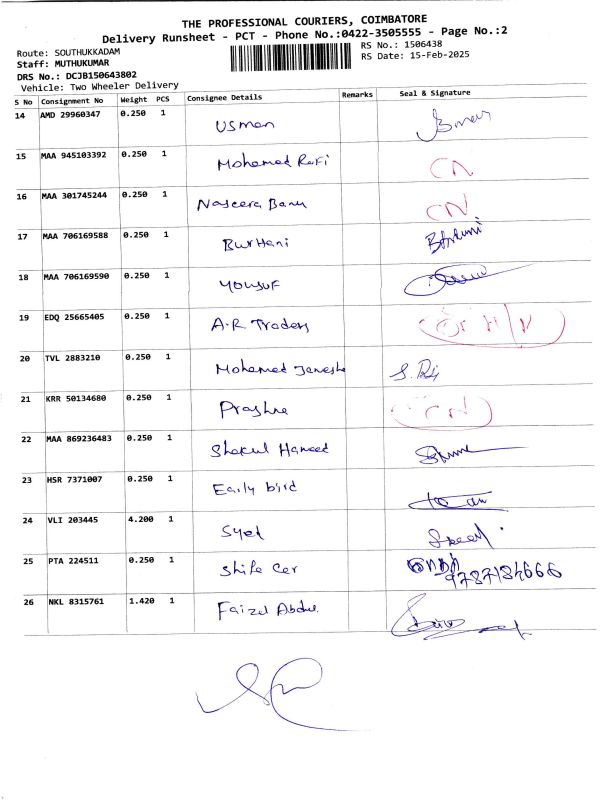 THE PROFESSIONAL COURIERS, COIMBATORE
Delivery Runsheet - PCT - Phone No.:0422-3505555 - Page No.:2
Route: SOUTHUKKADAM RS No.: 1506438
Staff: MUTHUKUMAR RS Date: 15-Feb-2025
DRS No.: DCJB150643802
Vehicle: Two Wheeler Delivery
S No Consignment No Weight PCS Consignee Details Remarks Seal & Signature
14 AMD 29960347 0.250 1 Usman
15 MAA 945103392 0.250 1 Mohamed Rafi CN
16 MAA 301745244 0.250 1 Naseera Banu CN
17 MAA 706169588 0.250 1 Burhani
18 MAA 706169590 0.250 1 Yousuf
19 EDQ 25665405 0.250 1 A.R Traders
20 TVL 2883210 0.250 1 Mohamed
21 KRR 50134680 0.250 1 CN
22 MAA 869236483 0.250 1 Shakul Hameed
23 HSR 7371007 0.250 1 Early bird
24 VLI 203445 4.200 1 Syed
25 PTA 224511 0.250 1 Shifa Car 9787184666
26 NKL 8315761 1.420 1 Faizul Abdul